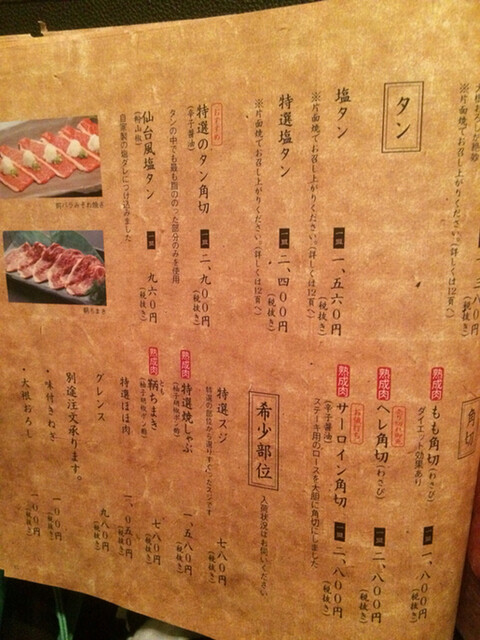 タン
塩タン 一皿 一、五六〇円(税抜き)
※片面焼でお召し上がりください。(詳しくは12頁へ)
特選塩タン 一皿 二、四〇〇円(税抜き)
※片面焼でお召し上がりください。(詳しくは12頁へ)
おすすめ
特選のタン角切 一皿 二、九〇〇円(税抜き)
(辛子醤油)
タンの中でも最も脂ののった部分のみを使用
仙台風塩タン 一皿 九六〇円(税抜き)
(粉山椒)
自家製の塩ダレにつけ込みました
鞆ちまき
角切
熟成肉 もも角切(わさび) 一皿 一、八〇〇円(税抜き)
ダイエット効果あり
熟成肉 ヘレ角切(わさび) 一皿 二、八〇〇円(税抜き)
熟成肉 サーロイン角切 一皿 二、八〇〇円(税抜き)
(辛子醤油)
ステーキ用のロースを大胆に角切にしました
希少部位 入荷状況はお伺いください
特選スジ 七八〇円(税抜き)
特選の部位から選りすぐったスジです
熟成肉 特選焼しゃぶ 一、五八〇円(税抜き)
(柚子胡椒ポン酢)
熟成肉 鞆ちまき 七八〇円(税抜き)
とも
(柚子胡椒ポン酢)
特選ほほ肉 一、〇五〇円(税抜き)
グレンス 九八〇円(税抜き)
別途注文承ります。
・味付きねぎ 一〇〇円(税抜き)
・大根おろし 一〇〇円(税抜き)